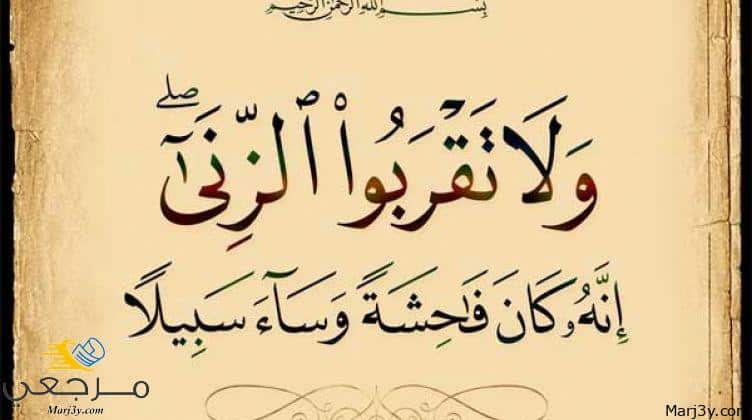 بِسْمِ اللَّهِ الرَّحْمَنِ الرَّحِيمِ
وَلَا تَقْرَبُوا۟ ٱلزِّنَىٰٓ ۖ
إِنَّهُۥ كَانَ فَـٰحِشَةً وَسَآءَ سَبِيلًا
مرجعي
Marj3y.com
Marj3y.com